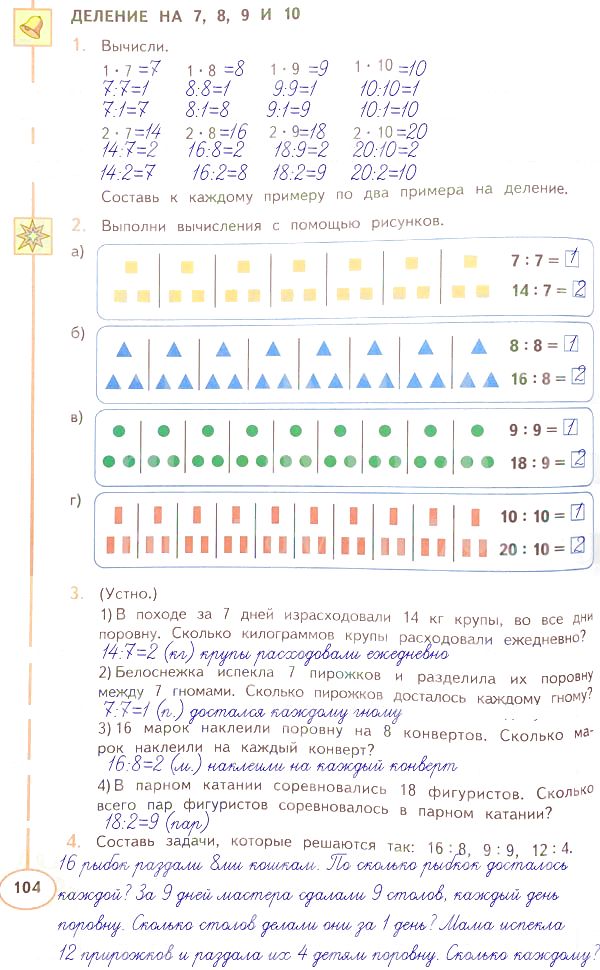 ДЕЛЕНИЕ НА 7, 8, 9 И 10
1. Вычисли.
1 · 7 =7 1 · 8 =8 1 · 9 =9 1 · 10 =10
7:7=1 8:8=1 9:9=1 10:10=1
7:1=7 8:1=8 9:1=9 10:1=10
2 · 7 =14 2 · 8 =16 2 · 9 =18 2 · 10 =20
14:7=2 16:8=2 18:9=2 20:10=2
14:2=7 16:2=8 18:2=9 20:2=10
Составь к каждому примеру по два примера на деление.
2. Выполни вычисления с помощью рисунков.
а) 7 : 7 = 1
14 : 7 = 2
б) 8 : 8 = 1
16 : 8 = 2
в) 9 : 9 = 1
18 : 9 = 2
г) 10 : 10 = 1
20 : 10 = 2
3. (Устно.)
1) В походе за 7 дней израсходовали 14 кг крупы, во все дни
поровну. Сколько килограммов крупы расходовали ежедневно?
14:7=2 (кг) крупы расходовали ежедневно
2) Белоснежка испекла 7 пирожков и разделила их поровну
между 7 гномами. Сколько пирожков досталось каждому гному?
7:7=1 (п.) достался каждому гному
3) 16 марок наклеили поровну на 8 конвертов. Сколько ма-
рок наклеили на каждый конверт?
16:8=2 (м.) наклеили на каждый конверт
4) В парном катании соревновались 18 фигуристов. Сколько
всего пар фигуристов соревновалось в парном катании?
18:2=9 (пар)
4. Составь задачи, которые решаются так: 16 : 8, 9 : 9, 12 : 4.
16 рыбок раздали 8ми кошкам. По сколько рыбкок досталось
104 каждой? За 9 дней мастера сдалали 9 столов, каждый день
поровну. Сколько столов делали они за 1 день? Мама испекла
12 прирожков и раздала их 4 детям поровну. Сколько каждому?